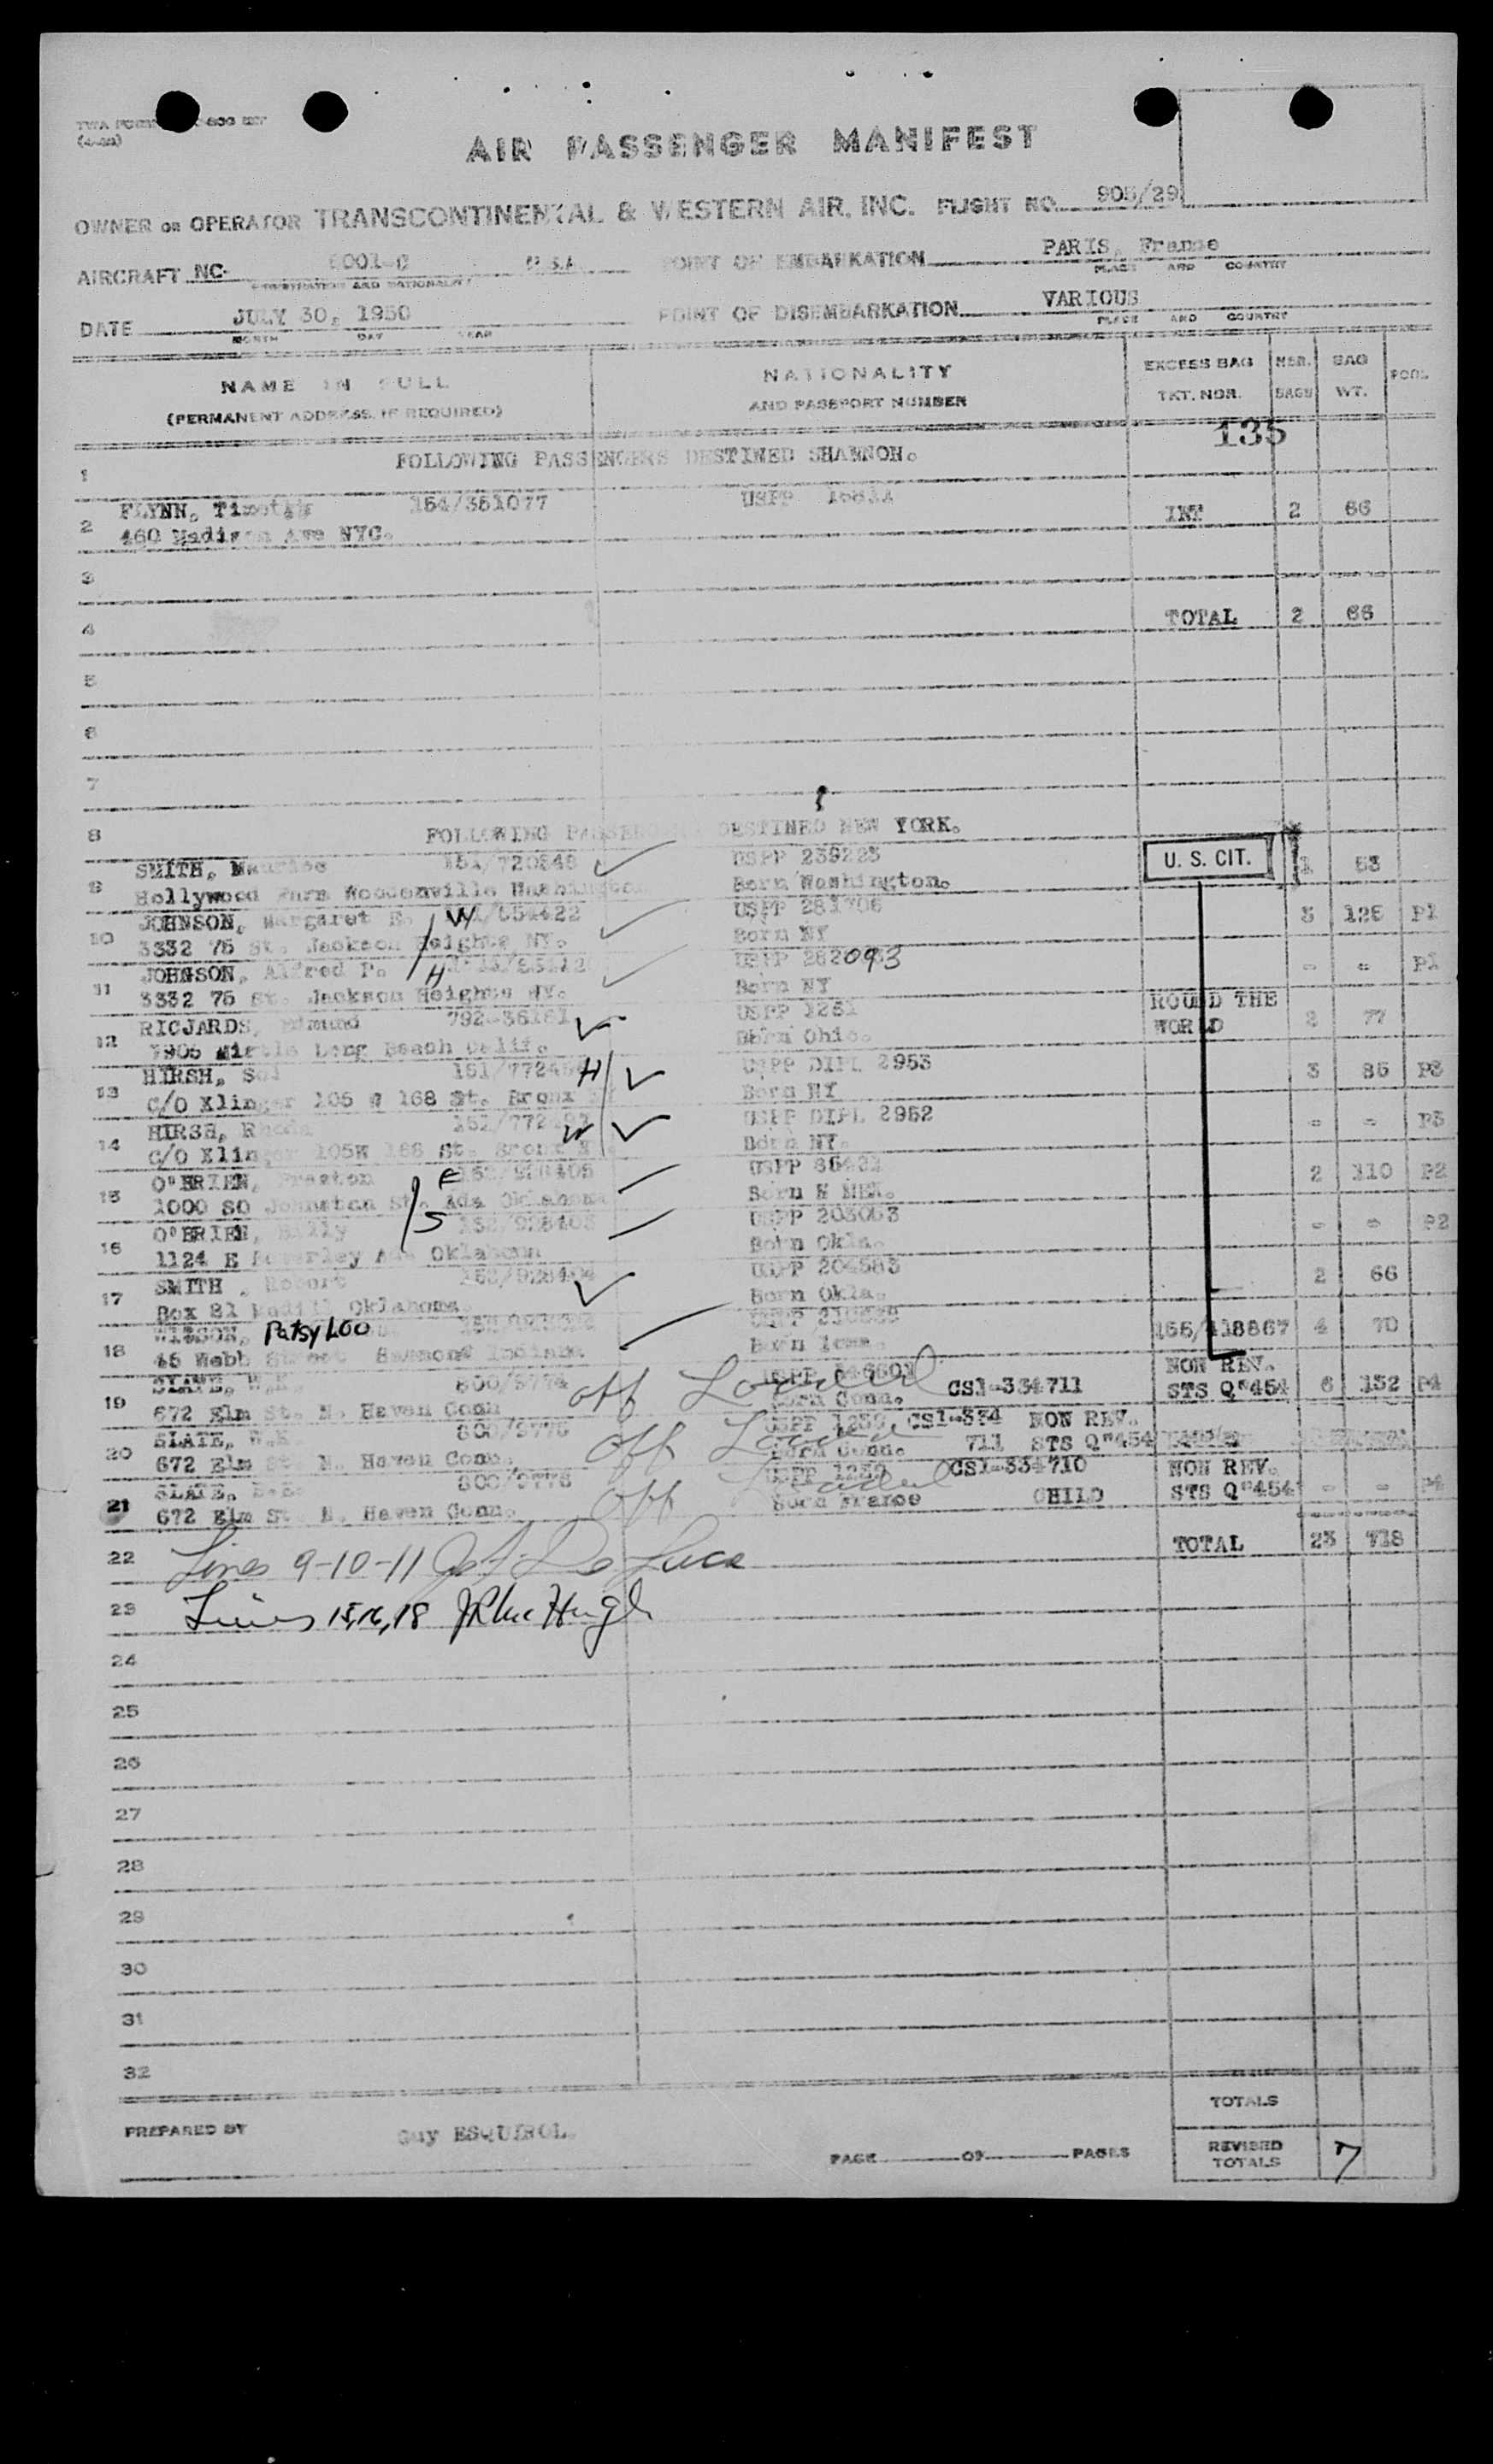 AIR PASSENGER MANIFEST
OWNER OR OPERATOR TRANSCONTINENTAL & WESTERN AIR, INC. FLIGHT NO. 905/29
AIRCRAFT NC- 6001-C U.S.A. POINT OF EMBARKATION PARIS, France
REGISTRATION AND NATIONALITY PLACE AND COUNTRY
DATE JULY 30, 1950 POINT OF DISEMBARKATION VARIOUS
MONTH DAY YEAR PLACE AND COUNTRY
NAME IN FULL NATIONALITY EXCESS BAG NBR. BAG POOL
(PERMANENT ADDRESS, IF REQUIRED) AND PASSPORT NUMBER TKT. NOR. BAGS WT.
135
1 FOLLOWING PASSENGERS DESTINED SHANNON.
FLYNN, Timothy 154/351077 USPP
2 460 Madison Ave NYC. INT 2 66
3
4 TOTAL 2 66
5
6
7
8 FOLLOWING PASSENGERS DESTINED NEW YORK.
SMITH, Maurice 151/720848 USPP 239223 U. S. CIT. 1 53
9 Hollywood Farm Woodenville Washington Born Washington.
JOHNSON, Margaret E. W USPP 281706 5 125 P1
10 3332 75 St. Jackson Heights NY. Born NY
JOHNSON, Alfred P. H USPP 282093 - - P1
11 3332 75 St. Jackson Heights NY. Born NY
RICJARDS, Edmund 792-36181 USPP 1251 ROUND THE
12 Long Beach Calif. Born Ohio. WORLD 2 77
HIRSH, Sol H USPP DIPL 2953 3 85 P3
13 C/O Klinger 105 W 168 St. Bronx Born NY
HIRSH, Rhoda W USPP DIPL 2952 - - P3
14 C/O Klinger 105W 168 St. Bronx Born NY.
O'BRIEN, Preston F USPP 2 110 P2
15 1000 SO Johnston St. Ada Oklahoma Born N MEX.
O'BRIEN, Billy S USPP 203053 - - P2
16 1124 E Beverley Ada Oklahoma Born Okla.
SMITH, Robert 152/928404 USPP 204583 2 66
17 Box 81 Madill Oklahoma Born Okla.
WILSON, Patsy Loo USPP 155/418867 4 70
18 45 Webb Street Indiana Born Iowa.
SLATE, W.K. 800/3774 off Loaded USPP CS1-334711 NON REV.
19 672 Elm St. N. Haven Conn Born Conn. STS Q"454 6 152 P4
SLATE, W.K. 800/3775 off Loaded USPP 1239, CS1-334 NON REV.
20 672 Elm St N. Haven Conn. Born Conn. 711 STS Q"454
SLATE, 800/3776 off Loaded USPP 1239 CS1-334710 NON REV.
21 672 Elm St N. Haven Conn. Born France CHILD STS Q"454 - - P4
22 Lines 9-10-11 De Luca TOTAL 23 718
23 Lines 15,16,18 J R Mc Hugh
24
25
26
27
28
29
30
31
32
TOTALS
PREPARED BY Guy ESQUIROL.
PAGE OF PAGES REVISED TOTALS 7